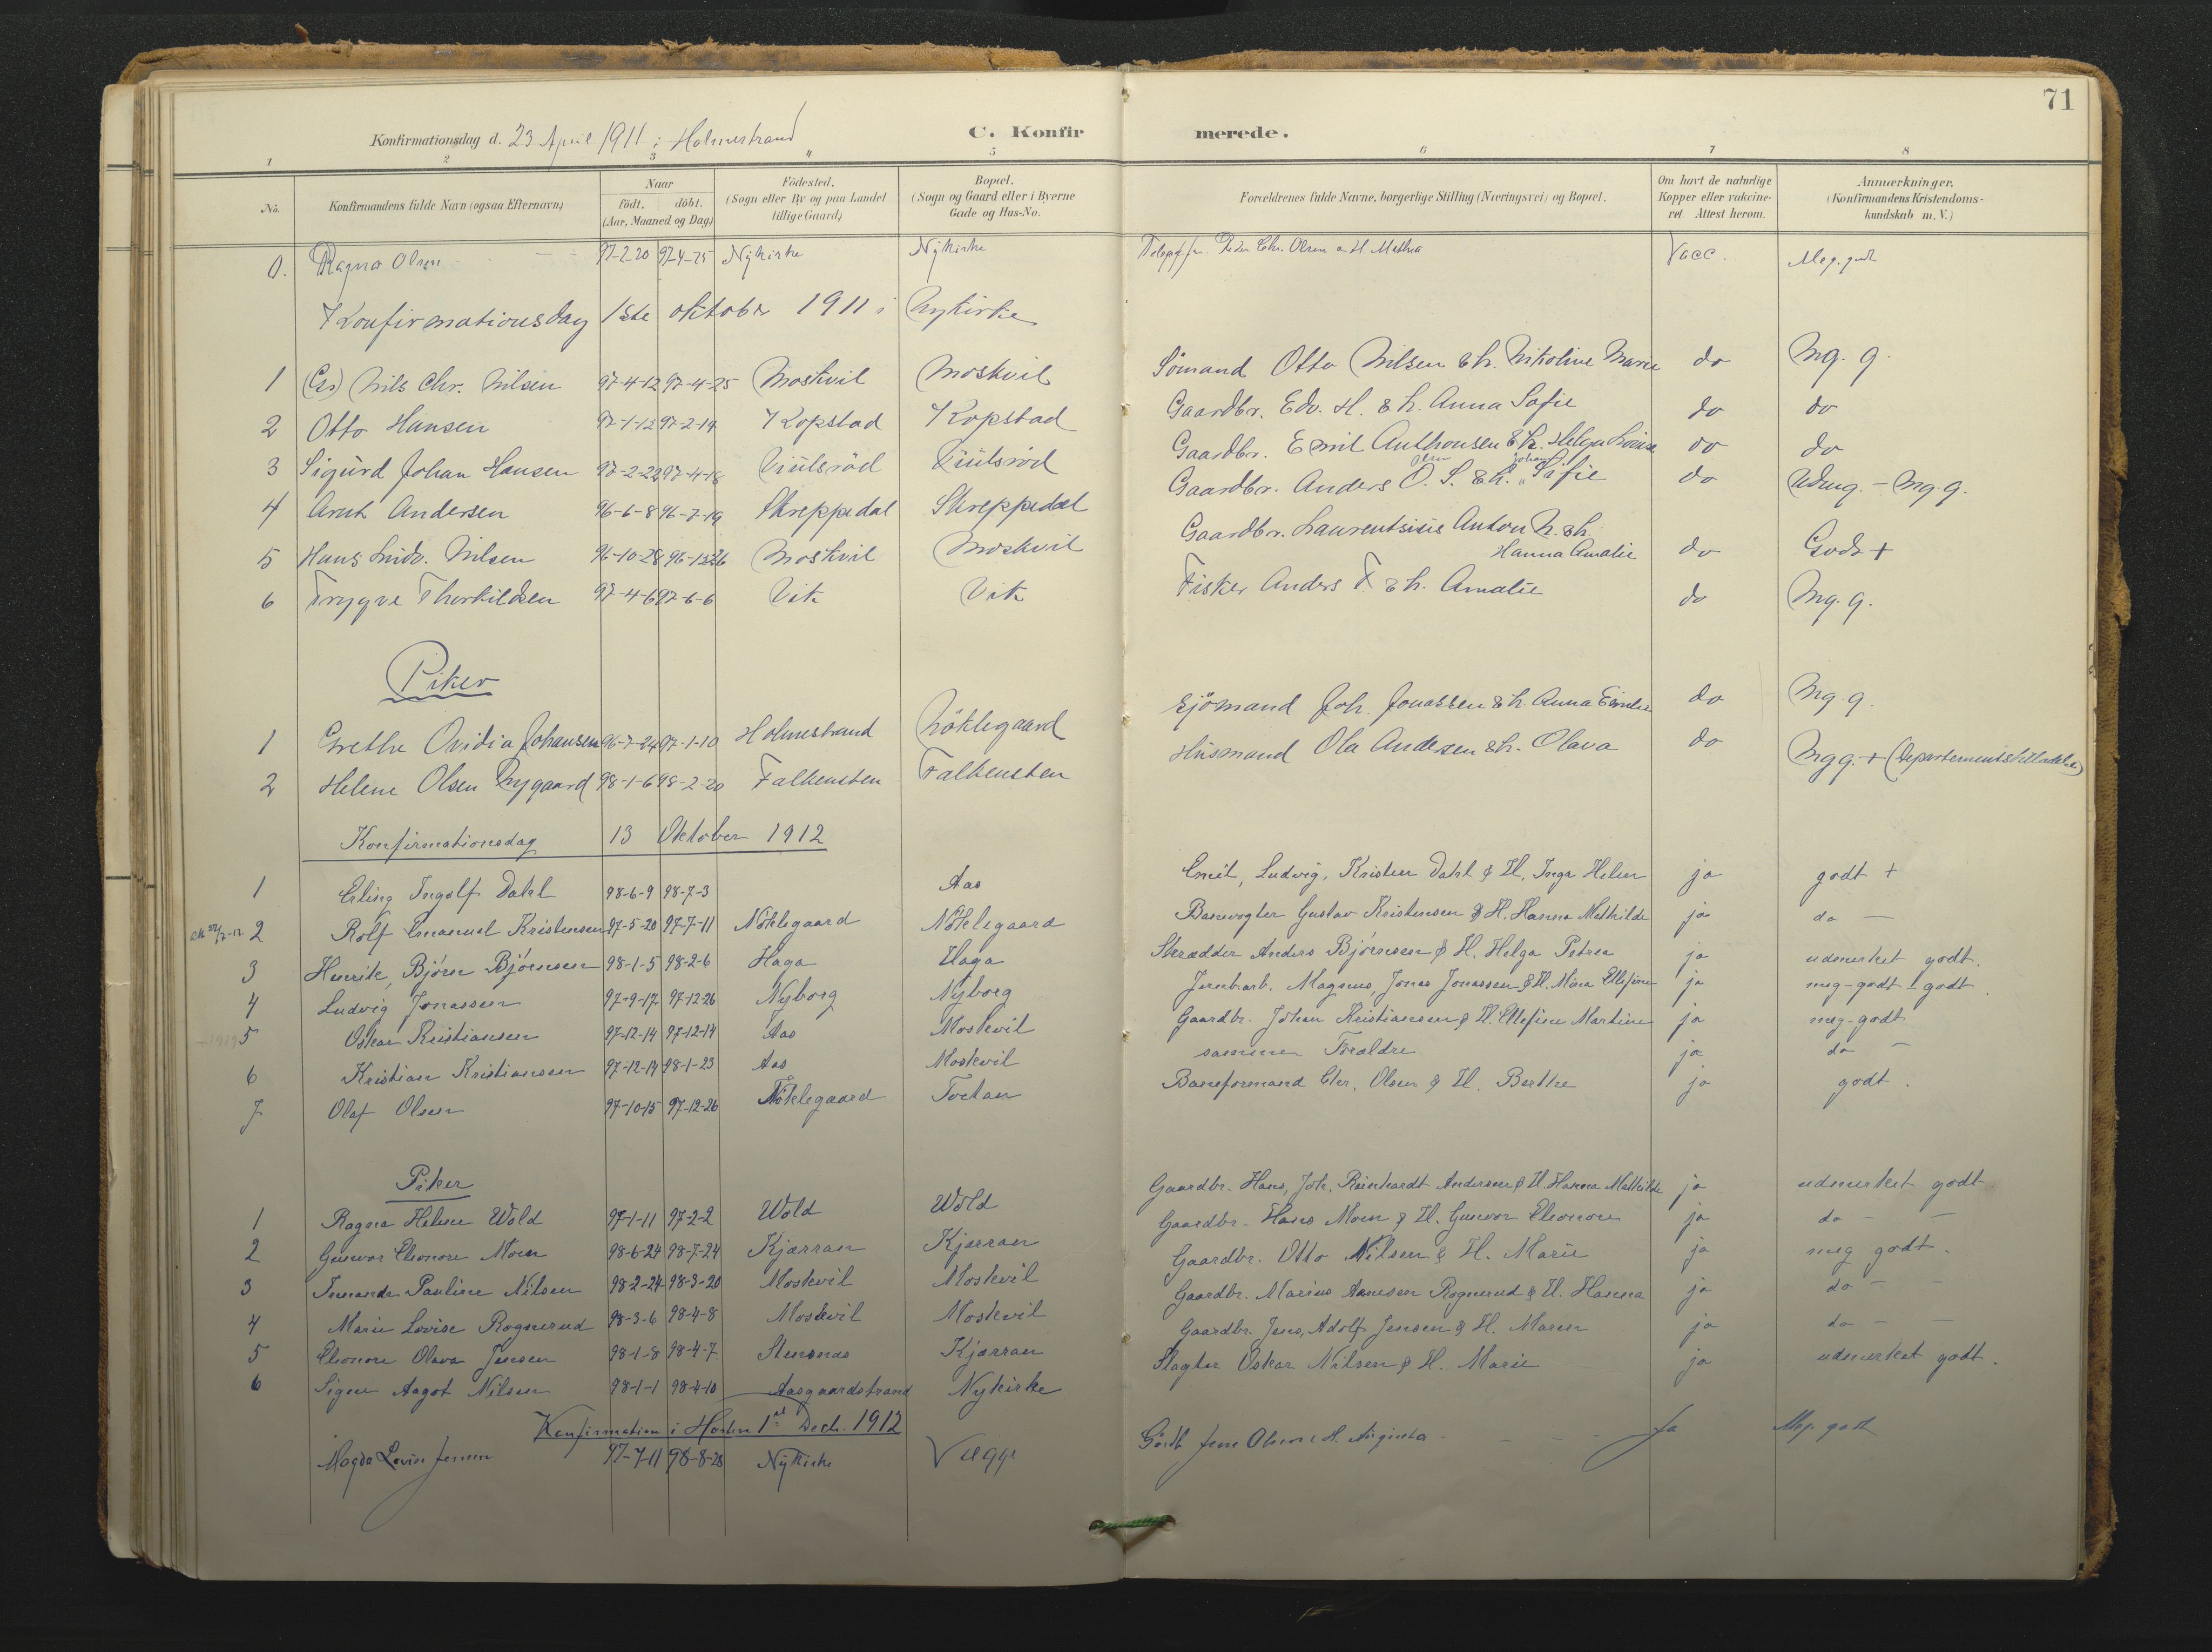 71
Konfirmationsdag d. 23 April 1911 i Holmestrand
C. Konfirmerede.
1 2 3 4 5 6 7 8
No. Konfirmandens fulde Navn (ogsaa Efternavn) Naar födt. döbt. (Aar, Maaned og Dag) Födested. (Sogn eller By og paa Landet tillige Gaard) Bopæl. (Sogn og Gaard eller i Byerne Gade og Hus-No. Forældrenes fulde Navne, borgerlige Stilling (Næringsvei) og Bopæl. Om havt de naturlige Kopper eller vakcineret Attest herom. Anmærkninger. (Konfirmandens Kristendomskundskab m. V.)
0. Ragna Olsen 97-2-20 97-4-25 Nykirke Nykirke Peder Chr. Olsen o H. Mathea Vacc. Meg. godt
Konfirmationsdag 1ste oktober 1911 i Nykirke
1 Nils Chr. Nilsen 97-4-12 97-4-25 Moskvil Moskvil Sömand Otto Nilsen & h. Nikoline Marie do Mg. g.
2 Otto Hansen 97-1-12 97-2-14 Kopstad Kopstad Gaardbr. Edv. H. & h. Anna Sofie do do
3 Sigurd Johan Hansen 97-2-22 97-4-18 Viulsröd Viulsröd Gaardbr. Emil Anthonsen & h. Helga Lovise do do
4 Arnt Andersen 96-6-8 96-7-19 Skreppedal Skreppedal Gaardbr. Anders O. S. & h. Sofie do Udmg. - mg. g.
5 Hans Ludv. Nilsen 96-10-28 96-12-26 Moskvil Moskvil Gaardbr. Laurentsius Anton N. & h. Hanna Amalie do Godt +
6 Trygve Thorkildsen 97-4-6 97-6-6 Vik Vik Fisker Anders T. & h. Amalie do Mg. g.
Piker
1 Grethe Ovidia Johansen 96-7-24 97-1-10 Holmestrand Nöklegaard Sjömand Joh. Jonassen & h. Anna Emilie do Mg. g.
2 Helene Olsen Nygaard 98-1-6 98-2-20 Falkensten Falkensten Husmand Ola Andersen & h. Olava do Mg g. + (Departementstilladelse)
Konfirmationsdag 13 Oktober 1912
1 Erling Ingolf Dahl 98-6-9 98-7-3 Aas Emil, Ludvig, Kristian Dahl & H. Inga Helene ja godt +
2 Rolf Emanuel Kristensen 97-5-20 97-7-11 Nöklegaard Nöklegaard Banevogter Gustav Kristensen & H. Hanna Mathilde ja do —
3 Henrik, Björn Björnsen 98-1-5 98-2-6 Haga Haga Skrædder Anders Björnsen & H. Helga Petrea ja udmerket godt.
4 Ludvig Jonassen 97-9-17 97-12-26 Nyborg Nyborg Jernb.arb. Magnus, Jonas Jonassen & H. Mina Ellefine ja meg-godt - godt.
5 Oskar Kristiansen 97-12-14 97-12-14 Aas Moskvil Gaardbr. Johan Kristiansen & H. Ellefine Martine ja meg-godt
6 Kristian Kristiansen 97-12-14 98-1-23 Aas Moskvil samme Forældre ja do —
7 Olaf Olsen 97-10-15 97-12-26 Nöklegaard Tortan Baneformand Chr. Olsen & H. Berthe ja godt.
Piker
1 Ragna Helene Wold 97-1-11 97-2-2 Wold Wold Gaardbr. Hans, Joh. Reinhardt Andersen & H. Hanna Mathilde ja udmerket godt
2 Gunvor Eleonore Moen 98-6-24 98-7-24 Kjærran Kjærran Gaardbr. Hans Moen & H. Gunvor Eleonore ja do — —
3 Pauline Nilsen 98-2-24 98-3-20 Moskvil Moskvil Gaardbr. Otto Nilsen & H. Marie ja meg godt.
4 Marie Lovise Rognerud 98-3-6 98-4-8 Moskvil Moskvil Gaardbr. Marius Rognerud & H. Hanna ja do —
5 Eleonore Olava Jensen 98-1-8 98-4-7 Stensnas Kjærran Gaardbr. Jens, Adolf Jensen & H. Maren ja do — —
6 Signe Aagot Nilsen 98-1-1 98-4-10 Aasgaardstrand Nykirke Slagter Oskar Nilsen & H. Marie ja udmerket godt.
Konfirmation i Horten 1st Decb. 1912
Magda Lovise Jensen 97-7-11 98-8-28 Nykirke Vagge Jens Olsen & H. ja Meg. godt